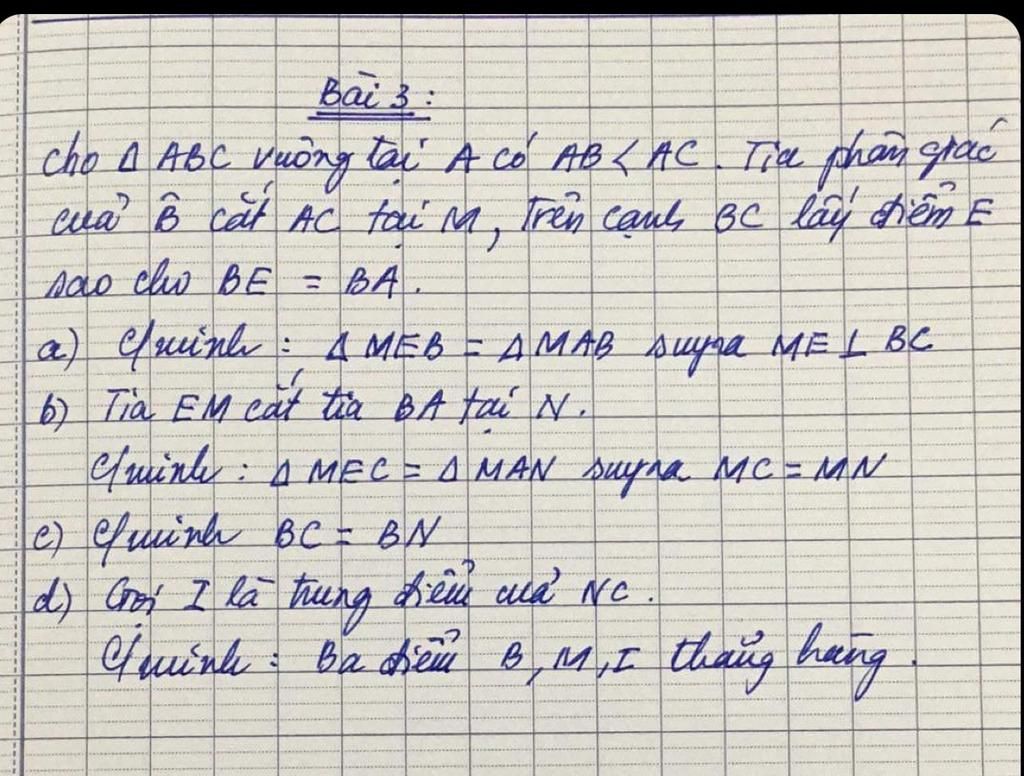 Bài 3 :
Cho Δ ABC vuông tại A có AB < AC . Tia phân giác
của B̂ cắt AC tại M , Trên cạnh BC lấy điểm E
sao cho BE = BA .
a) C/minh : Δ MEB = Δ MAB suy ra ME ⊥ BC
b) Tia EM cắt tia BA tại N .
C/minh : Δ MEC = Δ MAN suy ra MC = MN
c) C/minh BC = BN
d) Gọi I là trung điểm của NC .
C/minh : Ba điểm B , M , I thẳng hàng .